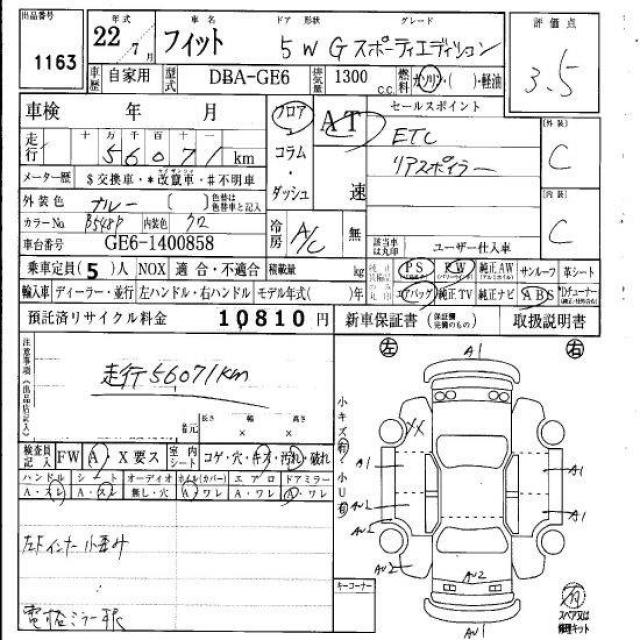 出品番号 年式 車名 ドア 形状 グレード 評価点
1163 22年 7月 フィット 5 W G スポーティエディション 3.5
車歴 自家用 型式 DBA-GE6 排気量 1300 c.c. 燃料 ガソリン・( )・軽油
車検 年 月 フロア AT セールスポイント 外装
走行 十万千百十一 56071 km コラム ETC C
リアスポイラー
メーター歴 $交換車・*改竄車・#不明車 ・ダッシュ 速 内装
外装色 ブルー ( ) 色替は色替車と記入 C
カラーNo. B548P 内装色 クロ 冷房 A/C 無
車台番号 GE6-1400858 該当車は丸印 ユーザー仕入車
乗車定員(5)人 NOX 適合・不適合 積載量 kg PS PW 純正AW サンルーフ 革シート
輸入車 ディーラー・並行 左ハンドル・右ハンドル モデル年式( )年 エアバッグ 純正TV 純正ナビ ABS
預託済リサイクル料金 10810円 新車保証書 取扱説明書
注意事項(出品店記入) 左 A1 右
走行56071km
長さ 幅 高さ
× ×
小キズ有・小U有
XX
検査員記入 FW A・X要ス 室内シート コゲ・穴・キズ・汚れ・破れ
ハンドル シート オーディオ ホイル(カバー) エアロ ドアミラー
A・スレ A・スレ 無し・穴 A・ワレ A・ワレ A・ワレ
A1 A1
AU2 A1
AU2
左Fインナー小歪み
AU2 AU2
キーコーナー
スペア又は修理キット
AU1